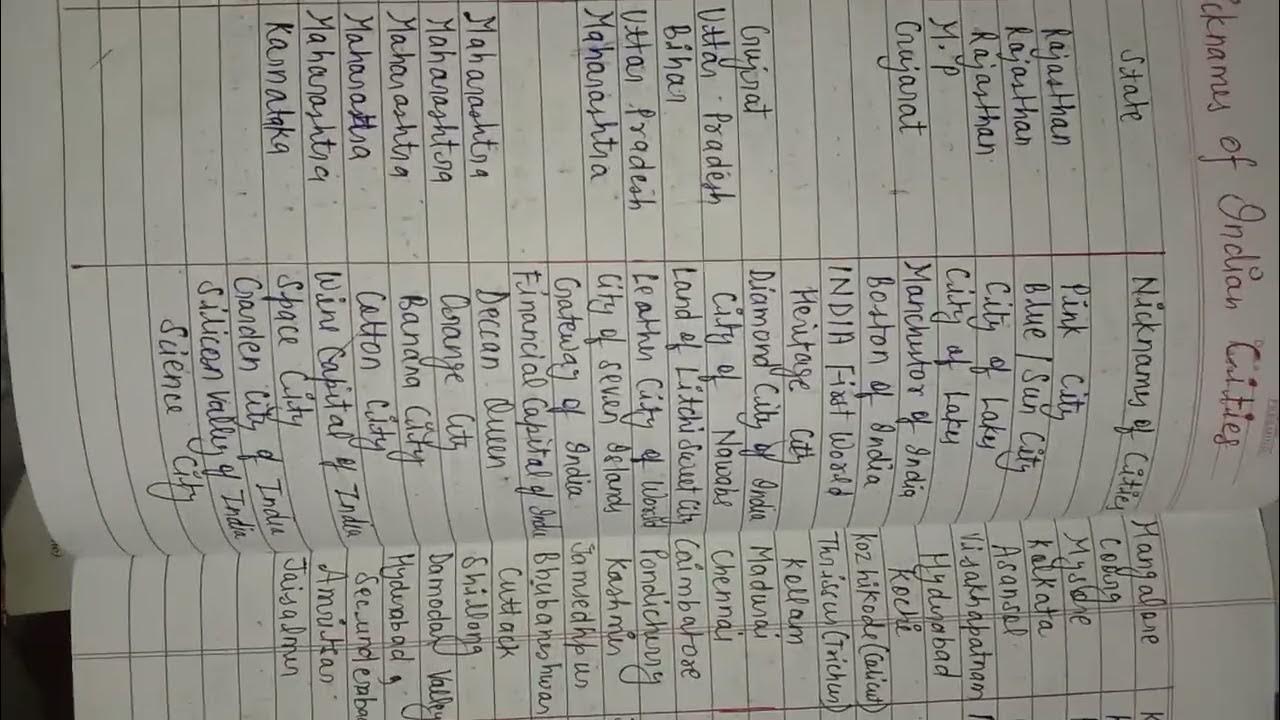 icknames of Indian Cities
State
Rajasthan
Rajasthan
Rajasthan
M.P
Gujarat
Gujrat
Uttar Pradesh
Bihar
Uttar Pradesh
Maharashtra
Maharashtra
Maharashtra
Maharashtra
Maharastra
Maharashtra
Karnataka
Nicknames of Cities
Pink City
Blue / Sun City
City of Lakes
City of Lakes
Manchestor of India
Boston of India
INDIA First World
Heritage City
Diamond City of India
City of Nawabs
Land of Litchi Sweet City
Leather City of World
City of Seven Islands
Gateway of India
Financial Capital of India
Deccan Queen
Orange City
Banana City
Cotton City
Wine Capital of India
Space City
Garden City of India
Silicon Valley of India
Science City
Mangalore
Coorg
Mysore
Kolkata
Asansol
Visakhapatnam
Hyderabad
Kochi
Kozhikode (Calicut)
Thrissur (Trichur)
Kollam
Madurai
Chennai
Coimbatore
Pondicherry
Kashmir
Jamsedhpur
Bhubaneshwar
Cuttack
Shillong
Damodal Valley
Hyderabad &
Secunderaba
Amritsar
Jaisalmer